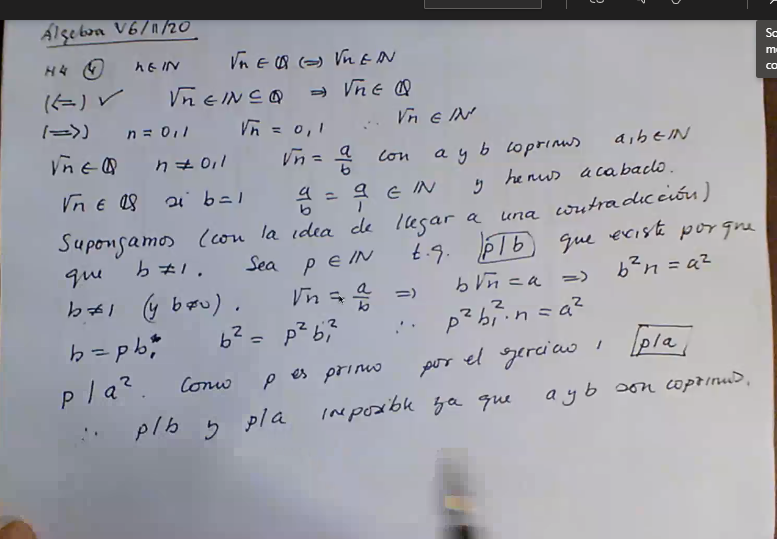 Álgebra V6/11/20
H4 ④ n∈ℕ √n ∈ ℚ ⟺ √n ∈ ℕ
(⇐) ✓ √n ∈ ℕ ⊆ ℚ ⇒ √n ∈ ℚ
(⇒) n = 0,1 √n = 0,1 ∴ √n ∈ ℕ
√n ∈ ℚ n ≠ 0,1 √n = a/b con a y b coprimos a,b ∈ ℕ
√n ∈ ℚ si b=1 a/b = a/1 ∈ ℕ y hemos acabado.
Supongamos (con la idea de llegar a una contradicción)
que b ≠ 1. Sea p ∈ ℕ t.q. p|b que existe porque
b ≠ 1 (y b ≠ 0). √n = a/b ⇒ b√n = a ⇒ b²n = a²
b = p b₁ b² = p² b₁² ∴ p² b₁² · n = a²
p | a². Como p es primo por el ejercicio 1 p|a
∴ p/b y p/a imposible ya que a y b son coprimos.
So
me
co